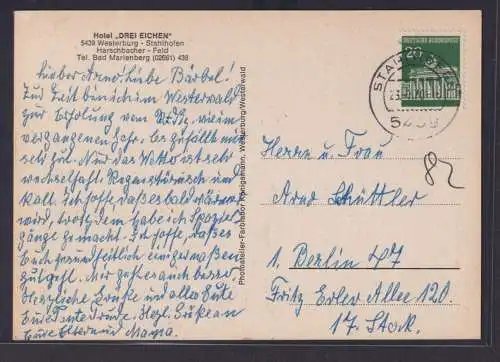 Hotel „DREI EICHEN"
5439 Westerburg - Stahlhofen
Harschbacher - Feld
Tel. Bad Marienberg (02661) 438
Lieber Arno! Liebe Bärbel!
Zur Zeit bin ich im Westerwald
zur Erholung vom wie im
vergangenen Jahr. Es gefällt mir
sehr gut. Nur das Wetter ist sehr
wechselhaft. Regnerisch und
kalt. Ich hoffe, daß es bald wärmer
wird, trotzdem habe ich Spazier
gänge gemacht. Ich hoffe, daß es
Euch gesundheitlich einigermaßen
gut geht. Mir geht es auch besser.
Herzliche Grüße und alles Gute
Eure Tante Trude. Herzl. Grüße an
Eure Eltern und Mama.
Photoatelier-Farblabor Königsmann, Westerburg/Westerwald
20 DEUTSCHE BUNDESPOST
5439
Herrn u. Frau
Arno Schüttler
1. Berlin 47
Fritz Erler Allee 120.
17. Stock.